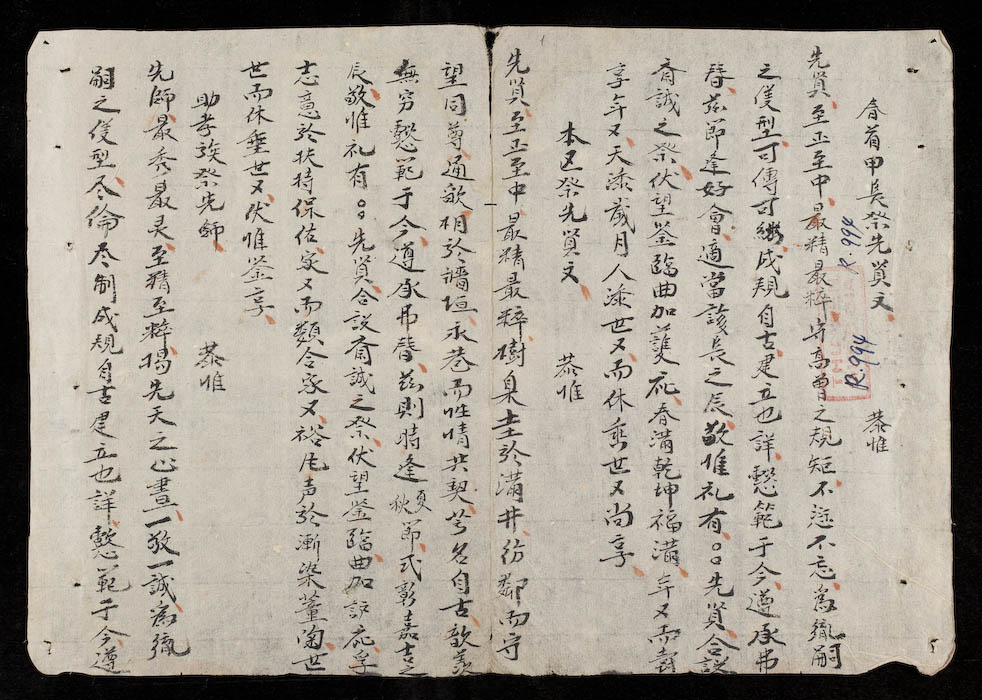 春首甲長祭先賢文　恭惟
先賢至正至中最精最粹守高曾之規矩不愆不忘為孫嗣
之儀型可傳可継成規自古建立也詳懿範于今遵承弗
替茲節逢好會適當該長之辰敬惟礼有。。先賢合設
齋誠之祭伏望鉴臨曲加護庇春滿乾坤福滿年又而壽
享年又天添歲月人添世又而休垂世又尚享
本匹祭先賢文　恭惟
先賢至正至中最精最粹樹臬圭於溝井彷鄰而守
望同尊通欵相於牆垣永巷而性情共契芳名自古歆羨
無穷懿範于今遵承弗替茲則時逢夏秋節式彰嘉吉之
辰敬惟礼有。。先賢合説齋誠之祭伏望鉴臨曲加詎庇孚
志意於扶持保佑家又而類合家又裕尾声於漸染薫陶世
世而休垂世又伏惟鉴享
助孝族祭先師　恭惟
先師最秀最灵至精至粹掲先天之心畫一敬一誠為孫
嗣之儀型尽倫尽制成規自古建立也詳懿範于今遵
R.994
R.994